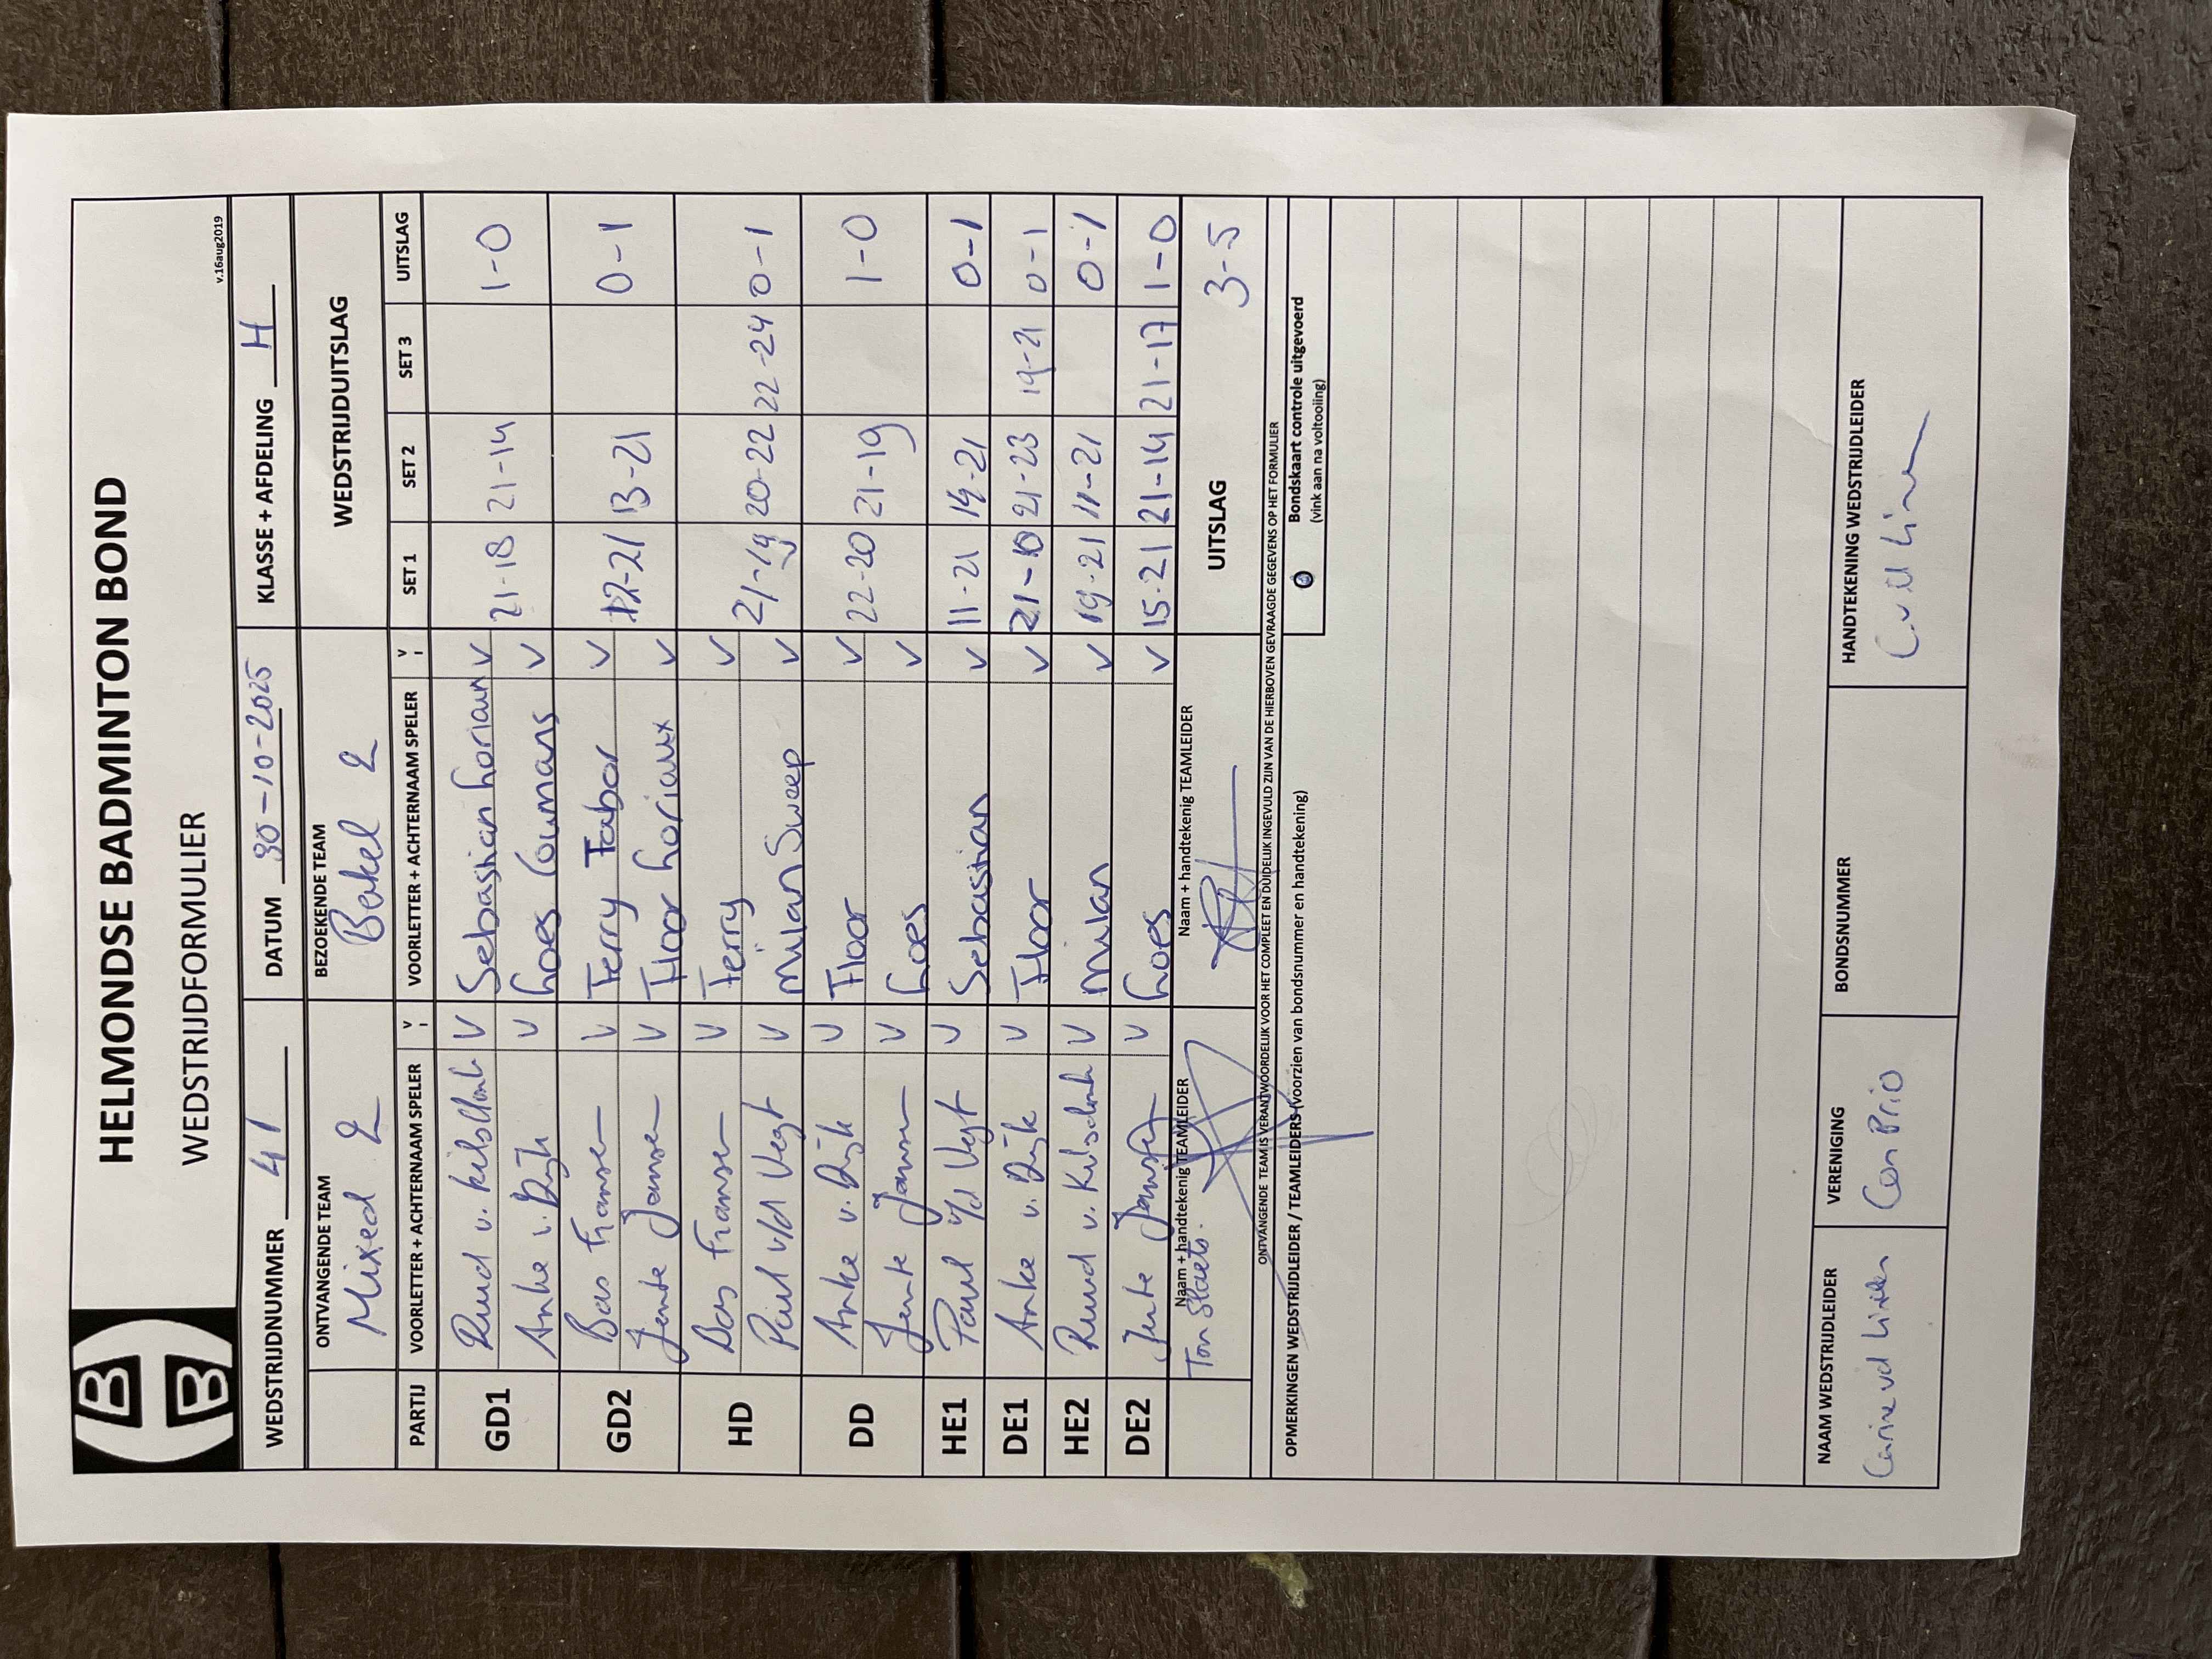 HELMONDSE BADMINTON BOND
WEDSTRIJDFORMULIER
v.16aug2019
WEDSTRIJDNUMMER 41 DATUM 30-10-2025 KLASSE + AFDELING H
ONTVANGENDE TEAM BEZOEKENDE TEAM WEDSTRIJDUITSLAG
Mixed 2 Bakel 2
PARTIJ VOORLETTER + ACHTERNAAM SPELER V VOORLETTER + ACHTERNAAM SPELER V SET 1 SET 2 SET 3 UITSLAG
GD1 Ruud v. Kilsdonk V Sebastian Loriaux V 21-18 21-14 1-0
Anke v. Dijk V Loes Coumans V
GD2 Bas Fransen V Ferry Tabor V 12-21 13-21 0-1
Jente Jansen V Floor Loriaux V
HD Bas Fransen V Ferry V 21-19 20-22 22-24 0-1
Paul v/d Vegt V Milan Sweep V
DD Anke v. Dijk V Floor V 22-20 21-19 1-0
Jente Jansen V Loes V
HE1 Paul v/d Vegt V Sebastian V 11-21 14-21 0-1
DE1 Anke v. Dijk V Floor V 21-10 21-23 19-21 0-1
HE2 Ruud v. Kilsdonk V Milan V 19-21 11-21 0-1
DE2 Jente Jansen V Loes V 15-21 21-14 21-17 1-0
Naam + handtekenig TEAMLEIDER Naam + handtekenig TEAMLEIDER UITSLAG 3-5
Ton Slaets.
ONTVANGENDE TEAM IS VERANTWOORDELIJK VOOR HET COMPLEET EN DUIDELIJK INGEVULD ZIJN VAN DE HIERBOVEN GEVRAAGDE GEGEVENS OP HET FORMULIER
OPMERKINGEN WEDSTRIJDLEIDER / TEAMLEIDERS (voorzien van bondsnummer en handtekening) Bondskaart controle uitgevoerd
(vink aan na voltooling)
NAAM WEDSTRIJDLEIDER VERENIGING BONDSNUMMER HANDTEKENING WEDSTRIJDLEIDER
Carine vd Linden Con Brio